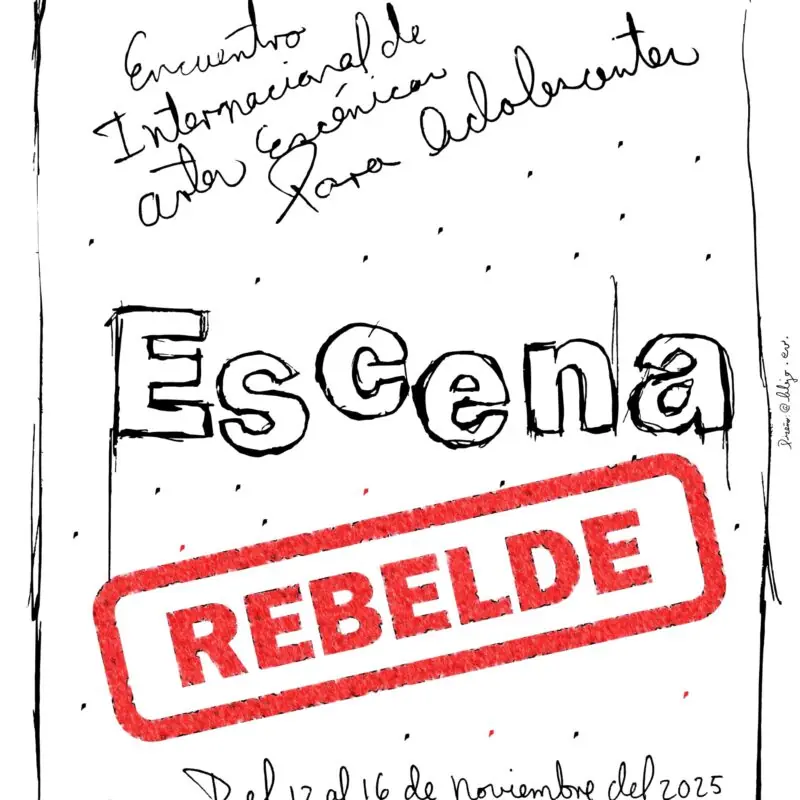 Encuentro
Internacional de
artes Escénicas
Para Adolescentes
Escena
REBELDE
Del 12 al 16 de noviembre del 2025